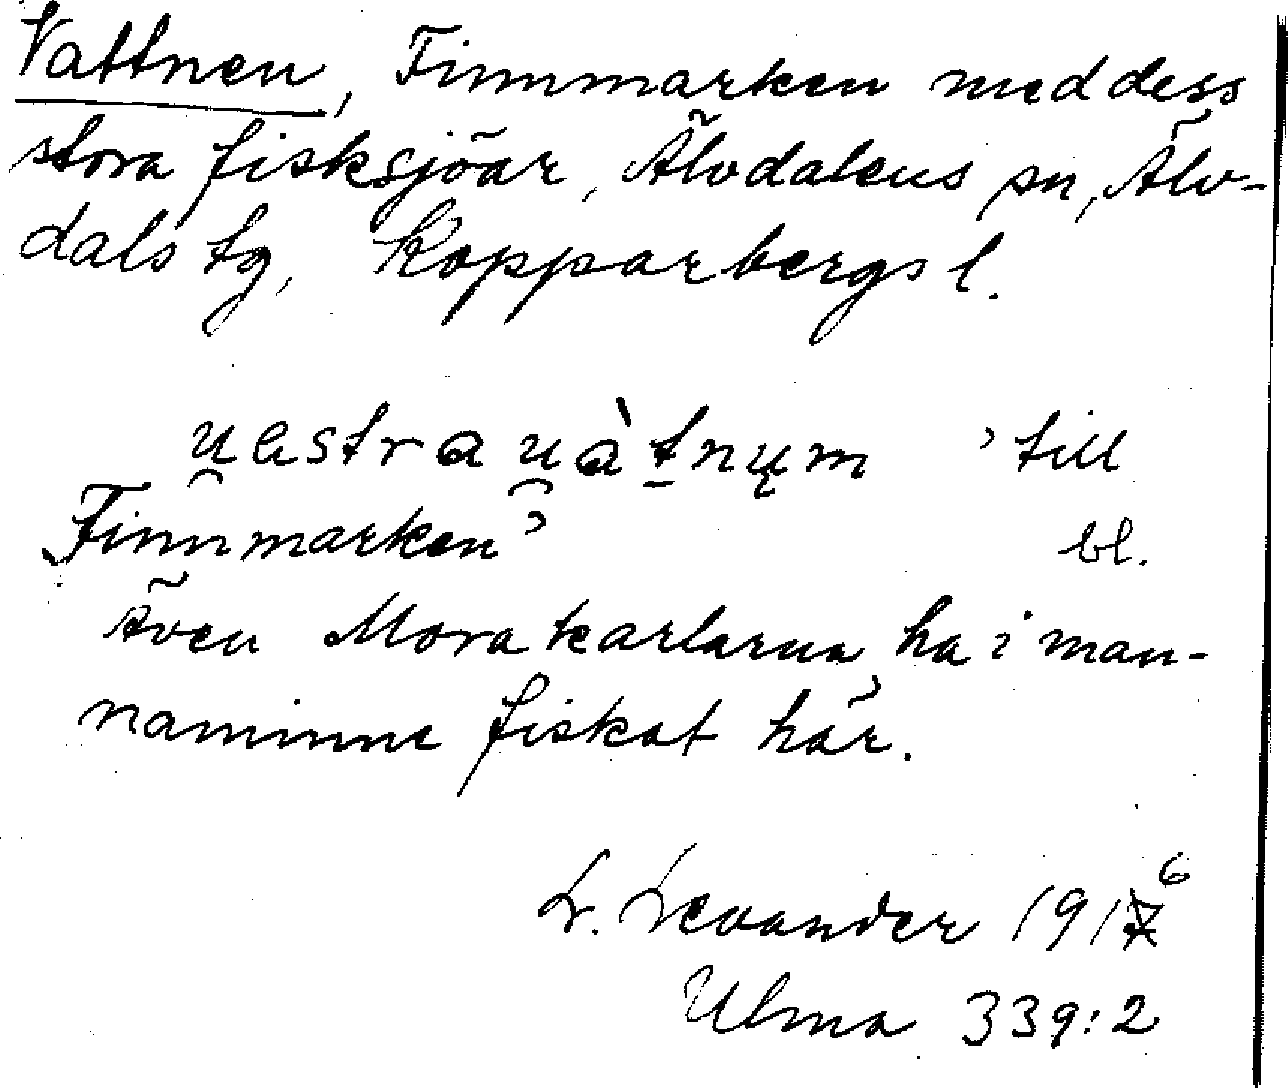 Vattnen, Finnmarken med dess
stora fisksjöar, Älvdalens sn, Älv-
dals tg, Kopparbergs l.
u̯estra u̯àt̠nųm 'till
Finnmarken' bl.
även Morakarlarna ha i man-
naminne fiskat här.
L. Levander 1916
Ulma 339:2